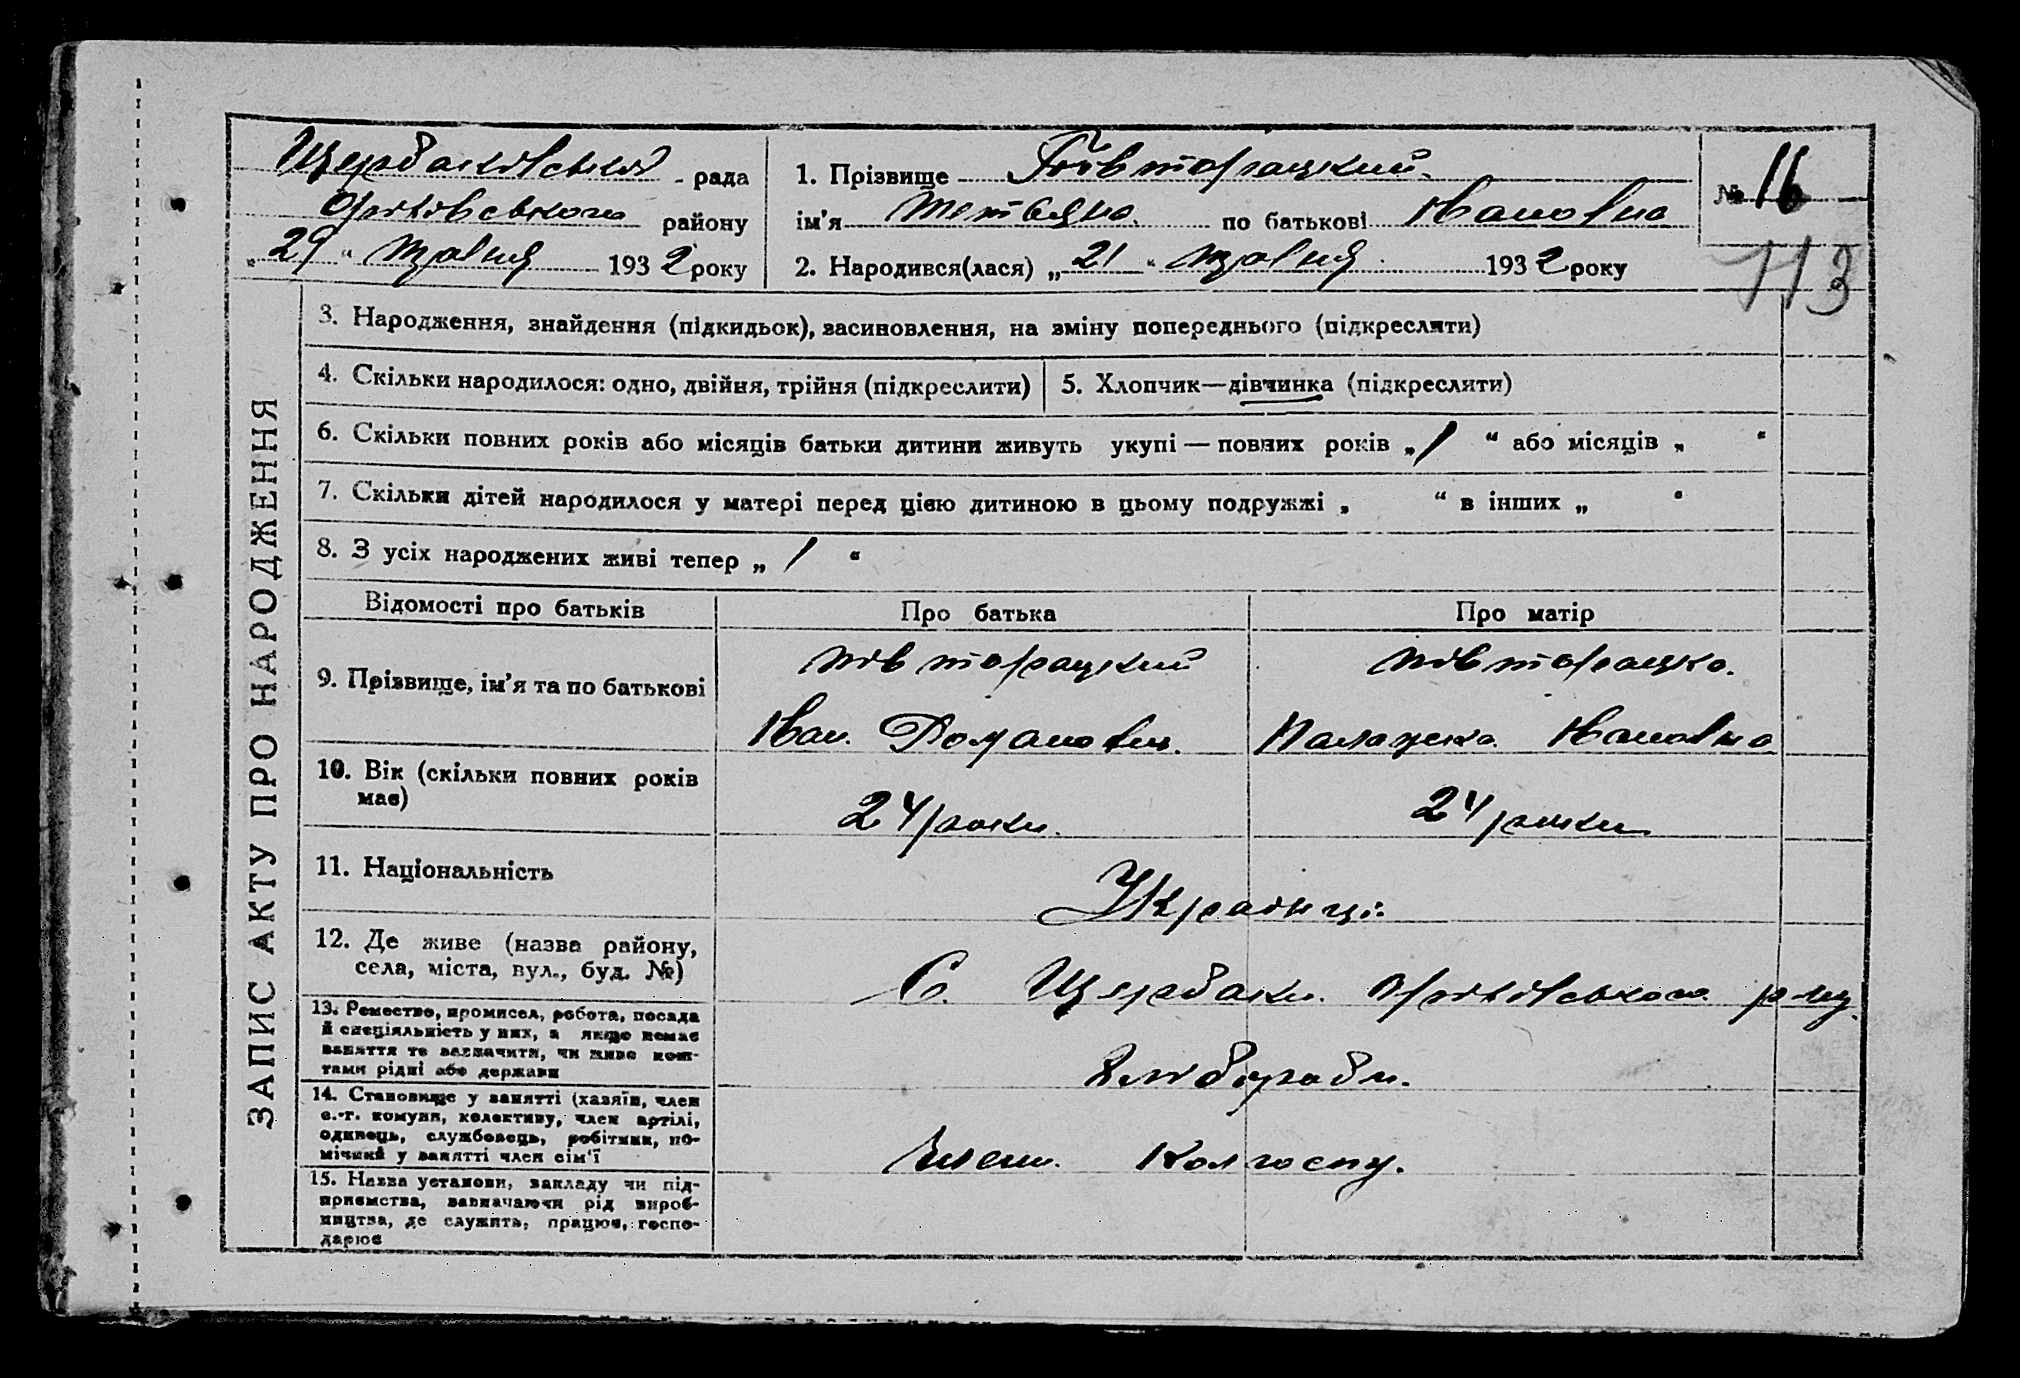 Щербаківська рада
Оріхівського району
„ 29 “ травня 1932 року
1. Прізвище Півторацкий.
ім'я Тетьяна. по батькові Івановна
2. Народився(лася) „ 21 “ травня 1932 року
№ 16
113
ЗАПИС АКТУ ПРО НАРОДЖЕННЯ
3. Народження, знайдення (підкидьок), засиновлення, на зміну попереднього (підкреслити)
4. Скільки народилося: одно, двійня, трійня (підкреслити)
5. Хлопчик—дівчинка (підкреслити)
6. Скільки повних років або місяців батьки дитини живуть укупі — повних років „ 1 “ або місяців „ “
7. Скільки дітей народилося у матері перед цією дитиною в цьому подружжі „ “ в інших „ “
8. З усіх народжених живі тепер „ 1 “
Відомості про батьків
Про батька
Про матір
9. Прізвище, ім'я та по батькові
Півторацкий
Іван. Романович.
Півторацка.
Палажка Івановна
10. Вік (скільки повних років
має)
24 роки.
24 роки
11. Національність
Українці.
12. Де живе (назва району,
села, міста, вул., буд. №)
С. Щербаки. Оріхівського р-ну.
13. Ремество, промисел, робота, посада
й спеціяльність у них, а якщо немає
заняття то зазначити, чи живе кош-
тами рідні або держави
Хлібороби.
14. Становище у занятті (хазяїн, член
с.-г. комуни, колективу, член артілі,
одинець, службовець, робітник, по-
мічний у занятті член сім'ї
Член. Колгоспу.
15. Назва установи, закладу чи під-
приємства, зазначаючи рід вироб-
ництва, де служить, працює, госпо-
дарює